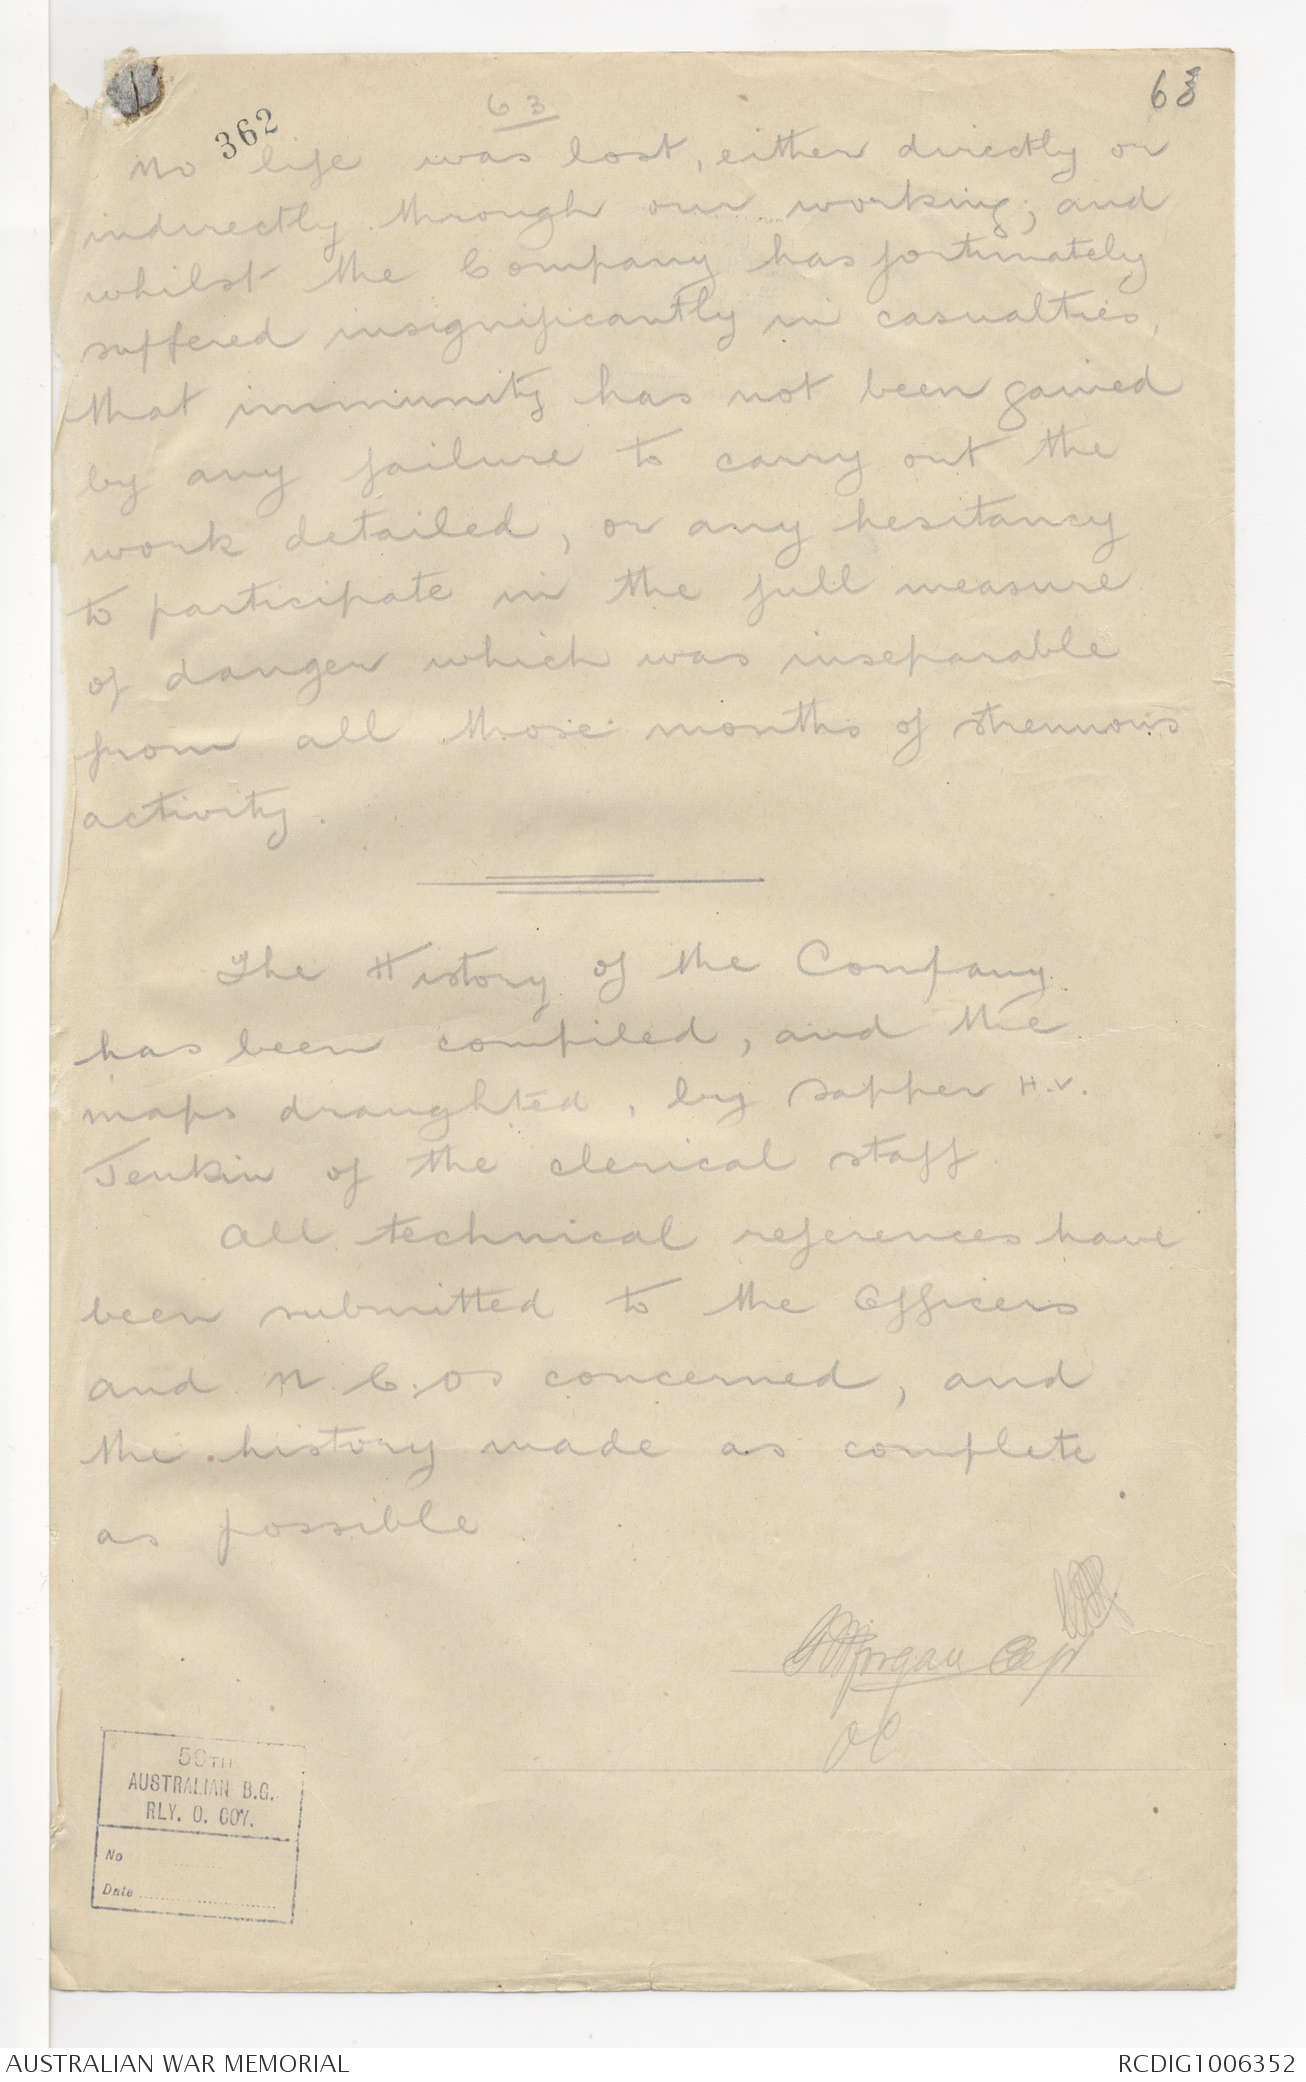 362
63
63
No life was lost, either directly or
indirectly through our working; and
whilst the Company has fortunately
suffered insignificantly in casualties,
that immunity has not been gained
by any failure to carry out the
work detailed, or any hesitancy
to participate in the full measure
of danger which was inseparable
from all those months of strenuous
activity.
The History of the Company
has been compiled, and the
maps draughted, by Sapper H.V.
Jenkin of the clerical staff.
All technical references have
been submitted to the Officers
and N.C.Os concerned, and
the history made as complete
as possible
Morgan Capt
OC
59TH
AUSTRALIAN B.G.
RLY. O. COY.
No
Date
AUSTRALIAN WAR MEMORIAL
RCDIG1006352